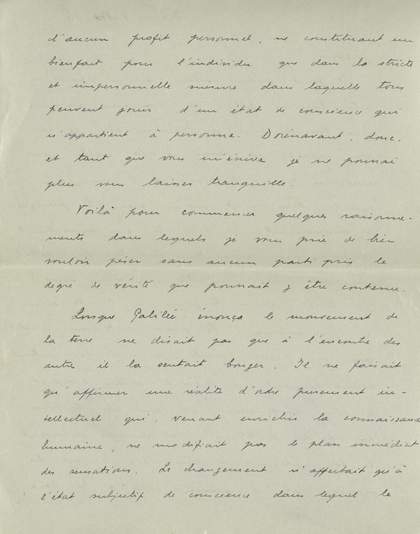 d'aucun profit personnel, ne constituant un
bienfait pour l'individu que dans la stricte
et impersonnelle mesure dans laquelle tous
peuvent jouir d'un état de conscience qui
n'appartient à personne. Dorénavant, donc,
et tant que vous m'écrirez je ne pourrai
plus vous laisser tranquille.
Voilà pour commencer quelques raisonne-
ments dans lesquels je vous prie de bien
vouloir peser sans aucun parti pris le
degré de vérité que pourrait y être contenu.
Lorsque Galilée énonça le mouvement de
la terre ne disait pas que à l'encontre des
autres il la sentait bouger. Il ne faisait
qu'affirmer une réalité d'ordre purement in-
tellectuel qui, venant enrichir la connaissance
humaine, ne modifiait pas le plan immédiat
des sensations. Le changement n'affectait qu'à
l'état subjectif de conscience dans lequel le